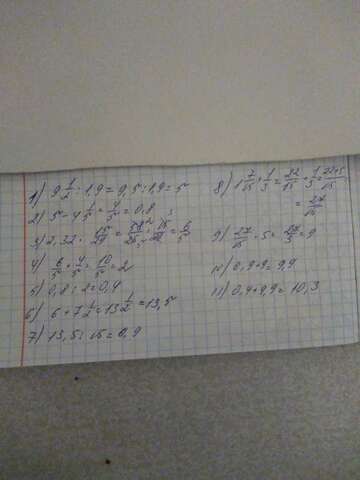 1) 9 1/2 : 1,9 = 9,5 : 1,9 = 5
2) 5 - 4 1/5 = 4/5 = 0,8
3) 2,32 · 15/29 = 58/25 · 15/29 = 6/5
4) 6/5 + 4/5 = 10/5 = 2
5) 0,8 : 2 = 0,4
6) 6 + 7 1/2 = 13 1/2 = 13,5
7) 13,5 : 15 = 0,9
8) 1 7/15 + 1/3 = 22/15 + 1/3 = 22+5/15
= 27/15
9) 27/15 · 5 = 27/3 = 9
10) 0,9 + 9 = 9,9
11) 0,4 + 9,9 = 10,3